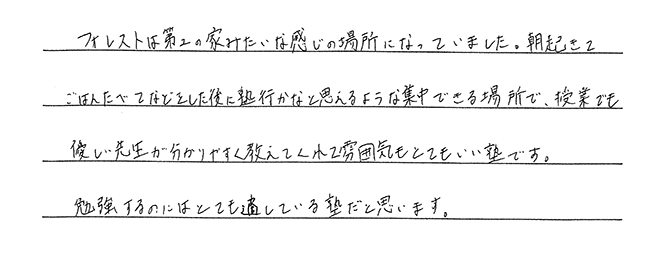 フォレストは第2の家みたいな感じの場所になっていました。朝起きて
ごはんたべてなどをした後に塾行かなと思えるような集中できる場所で、授業でも
優しい先生が分かりやすく教えてくれて雰囲気もとてもいい塾です。
勉強するのにはとても適している塾だと思います。